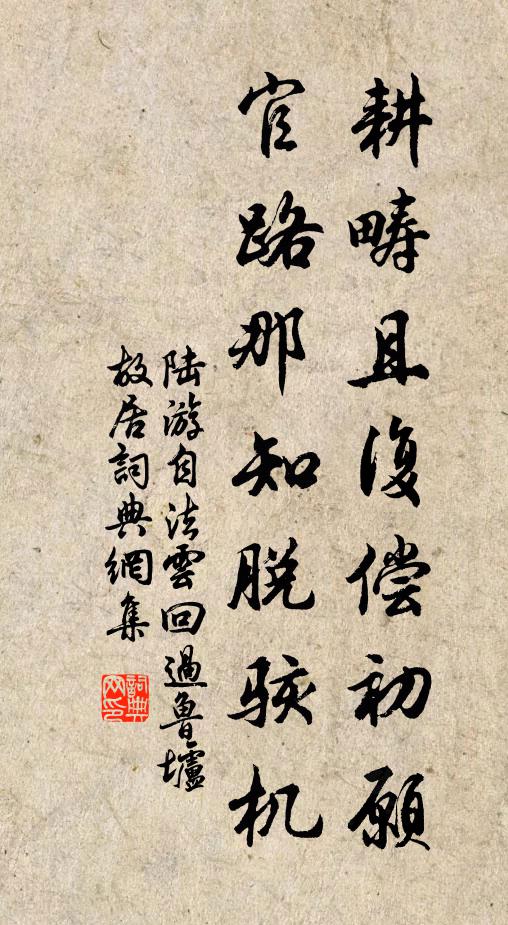 耕畴且復偿初願
官路那知脱駭机
陆游自法雲回過魯墟
故居詞典網集
詞典网印